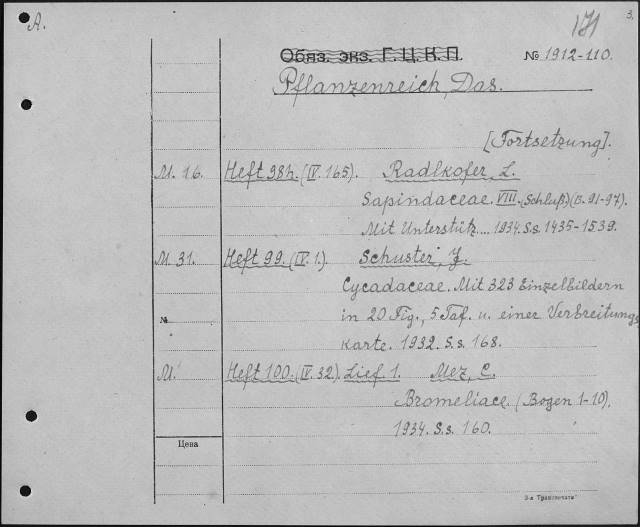 A.
171
3.
Обяз. экз. Г.Ц.К.П.
№ 1912-110.
Pflanzenreich, Das.
[Fortsetzung].
M. 16. Heft 98h. (IV. 165). Radlkofer, L.
Sapindaceae. VIII. (Schluß) (B. 91-97).
Mit Unterstütz.... 1934. S.s. 1435-1539.
M 31. Heft 99. (IV 1.) Schuster, J.
Cycadaceae. Mit 323 Einzelbildern
in 20 Fig., 5 Taf. u. einer Verbreitungs
№
karte. 1932. S.s. 168.
M. Heft 100. (IV. 32). Lief 1. Mez, C.
Bromeliace. (Bogen 1-10).
1934. S.s. 160.
Цена
3-я Транспечати